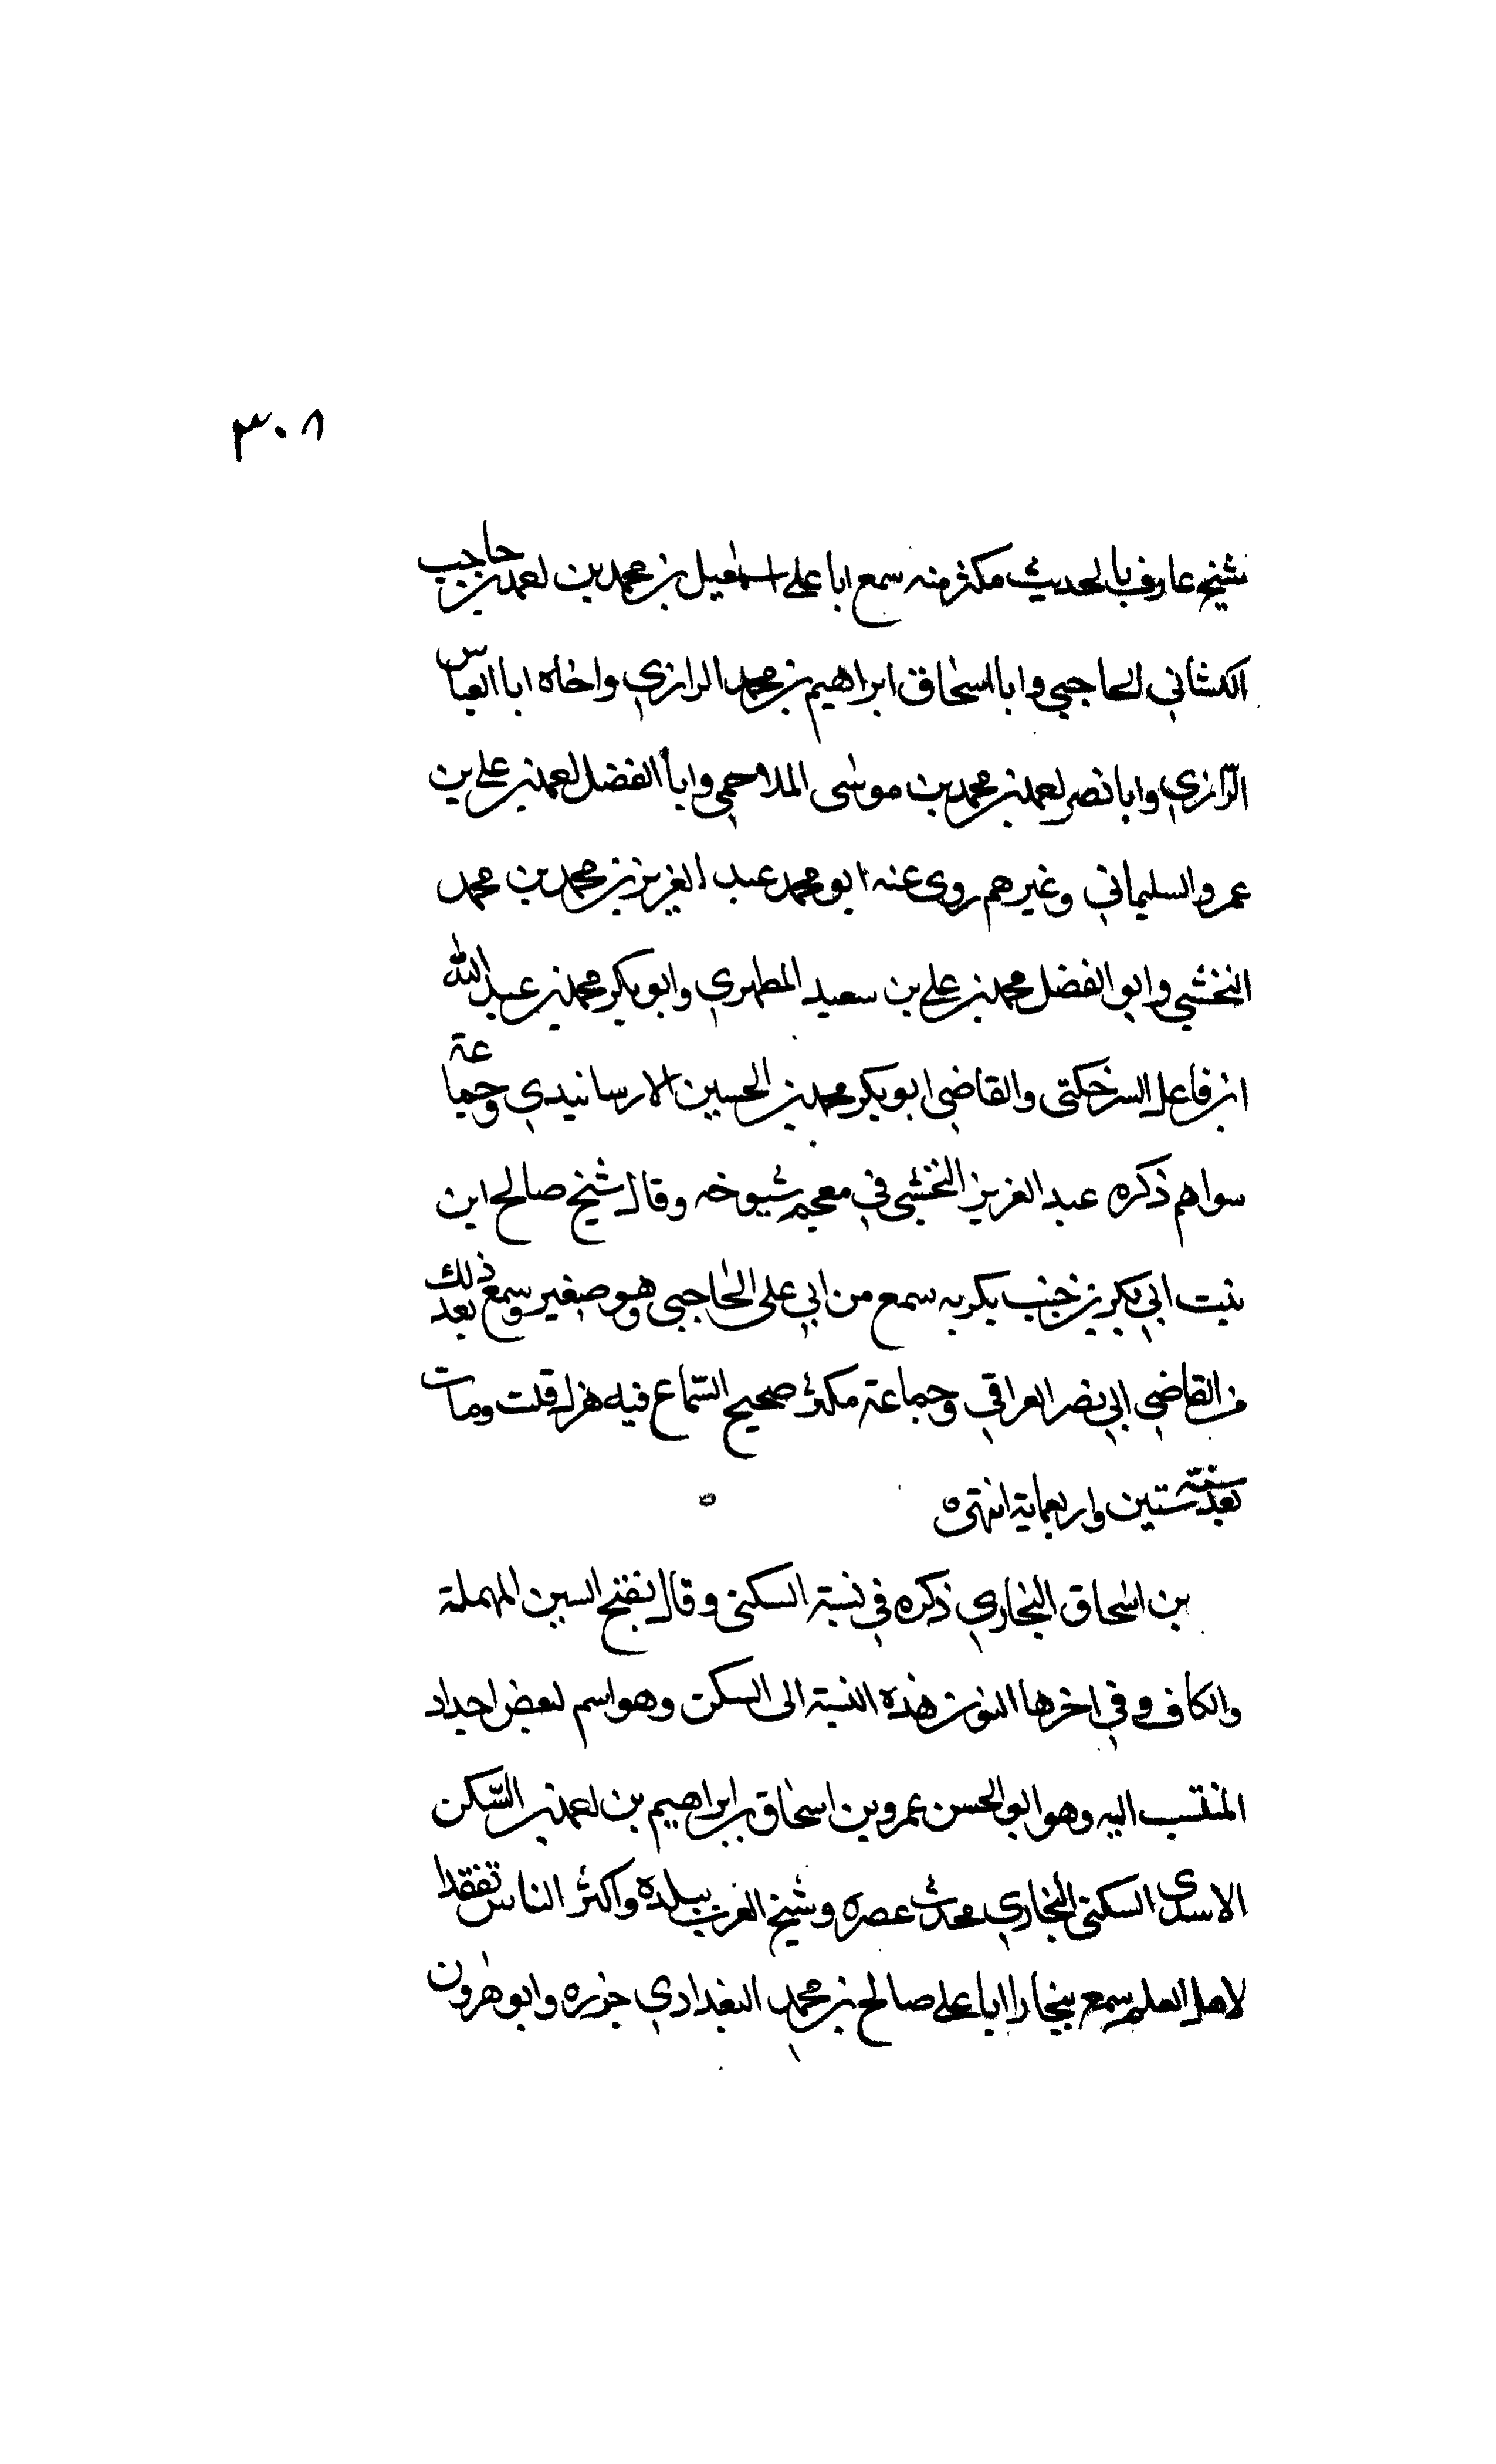 ٣٠٨
شيخ عارف بالحديث مكثر منه سمع ابا على اسمعيل بن محمد بن احمد بن حاجب
الكشاني الحاجبي وابا اسحاق ابراهيم بن محمد الرازي واخاه ابا العباس
الرازي وابا نصر احمد بن محمد بن موسى الملاحمي وابا الفضل احمد بن علي بن
عمرو السليماني وغيرهم روى عنه ابو محمد عبد العزيز بن محمد بن محمد
النخشبي وابو الفضل محمد بن علي بن سعيد المطهري وابو بكر محمد بن عبد الله
ابن فاعل السرخكتى والقاضي ابو بكر محمد بن الحسين الارسانيدي وجماعة
سواهم ذكره عبد العزيز النخشبي في معجم شيوخه وقال شيخ صالح ابن
بنت ابي بكر بن خنب بكر به سمع من ابي على الحاجبي وهو صغير وسمع بعد ذلك
من القاضي ابي نصر العراقي وجماعة مكثر صحيح السماع فيه هزل قلت ومات
بعد سنة ستين واربعماية انتهى ه
بن اسحاق البخاري ذكره في نسبة السكنى وقال بفتح السين المهملة
والكاف وفي اخرها النون هذه النسبة الى السكن وهو اسم لبعض اجداد
المنتسب اليه وهو ابو الحسن عمرو بن اسحاق بن ابراهيم بن احمد بن السكن
الاسدى السكنى البخاري محدث عصره وشيخ العرب ببلده واكثر الناس تفقدا
لاهل العلم سمع ببخارا ابا على صالح بن محمد البغدادي جزره وابو هرون